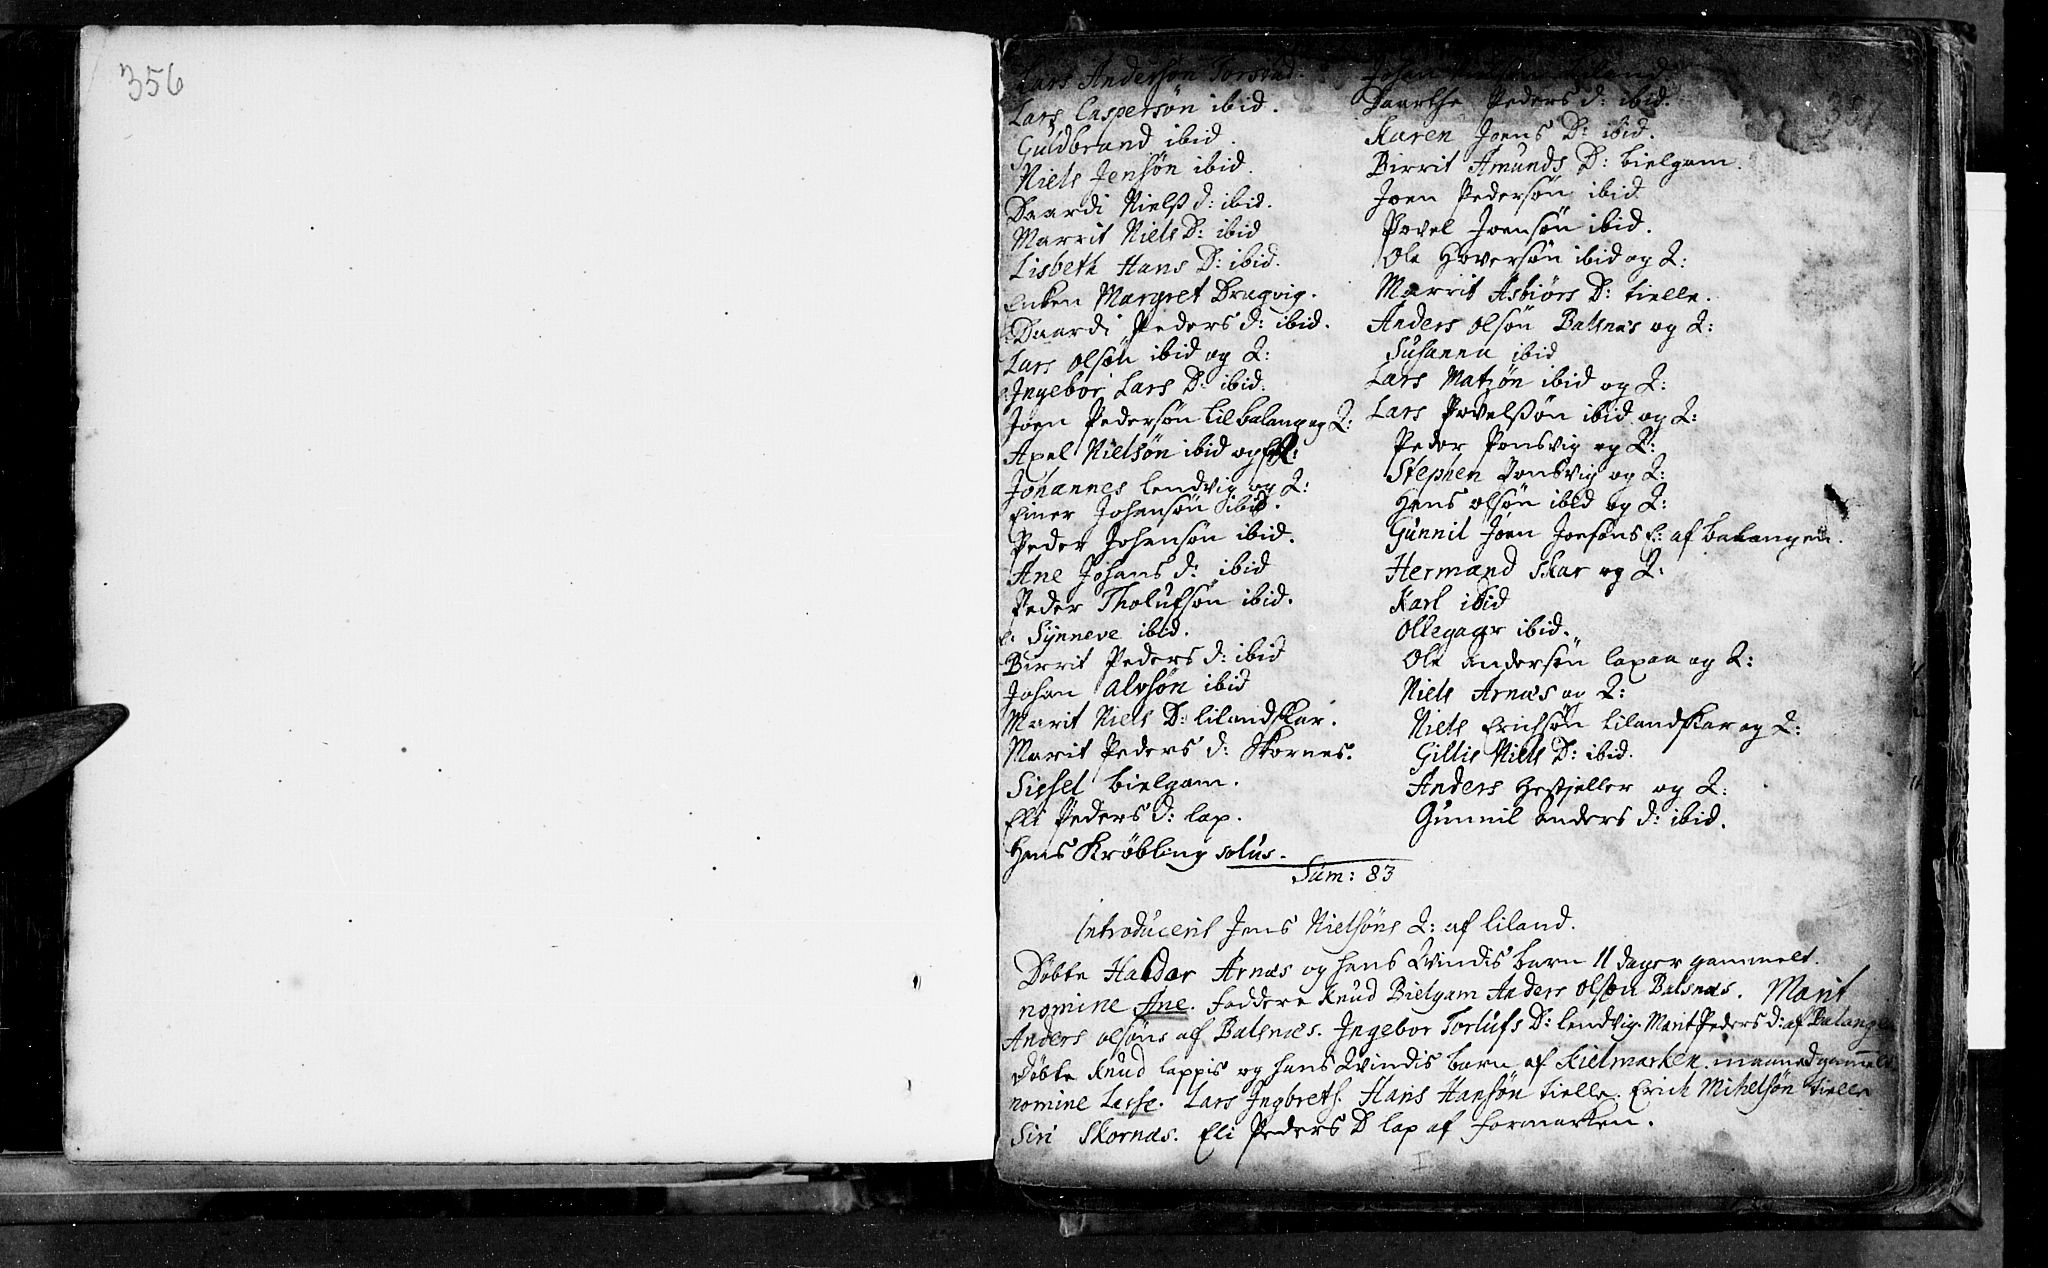 356
357
Lars Andersøn Forstad.
Lars Caspersøn ibid.
Guldbrand ibid.
Niels Jensøn ibid.
Daardi Nielß d: ibid.
Marrit Niels D: ibid
Lisbeth Hans D: ibid.
Enken Margret Dragvig.
Daardi Peders d: ibid.
Lars olsøn ibid og Q:
Ingebor Lars D: ibid.
Joen Pedersøn lil balang og Q:
Axel Nielsøn ibid og Q:
Johannes lendvig og Q:
Einer Johansøn ibid.
Peder Johansøn ibid.
Ane Johans d: ibid
Peder Tholufsøn ibid.
E. Synneve ibid.
Birrit Peders d: ibid
Johan alvsøn ibid
Marit Niels D: lilandskar.
Marit Peders d: Skornes.
Sissel bielgam.
Eli Peders d: lap.
Hans Krøbling solus.
Johan liland.
Daarthe Peders d: ibid.
Karen Joens D: ibid.
Birrit Amunds D: bielgam.
Joen Pedersøn ibid
Povel Joensøn ibid.
Ole Hoversøn ibid og Q:
Marrit Asbiørs D: tielle.
Anders olsøn Balsnæs og Q:
Susanna ibid
Lars Matzøn ibid og Q:
Lars Povelsøn ibid og Q:
Peder Ponsvig og Q:
Stephen Ponsvig og Q:
Hans olsøn ibid og Q:
Gunnil Joen Joensøns E: af balangen.
Hermand Skar og Q:
Karl ibid
Ollegaar ibid.
Ole andersøn lapaa og Q:
Niels Arnæs og Q:
Niels Erichsøn lilandskiar og Q:
Gillis Niels D: ibid.
Anders Hestjeller og Q:
Gunnil anders d: ibid.
Sum: 83
Introducerit Jens Nielsøns Q: af liland.
Døbte Haldor Arnæs og hans Qvindis barn 11 dager gammelt.
nomine Ane. faddere Knud Bielgam Anders olsøn Balsnæs. Marit
Anders olsøns af Balsnæs. Ingebor Torlufs D: lendvig. Marit Peders d: af Balangen
Døbte Knud lappis og hans Qvindis barn af Kielmarken. maaned gammelt
nomine Lasse. Lars Ingbrets: Hans Hansøn tielle. Erich Mihelsøn tielle
Siri Skornæs. Eli Peders D lap af formarken.